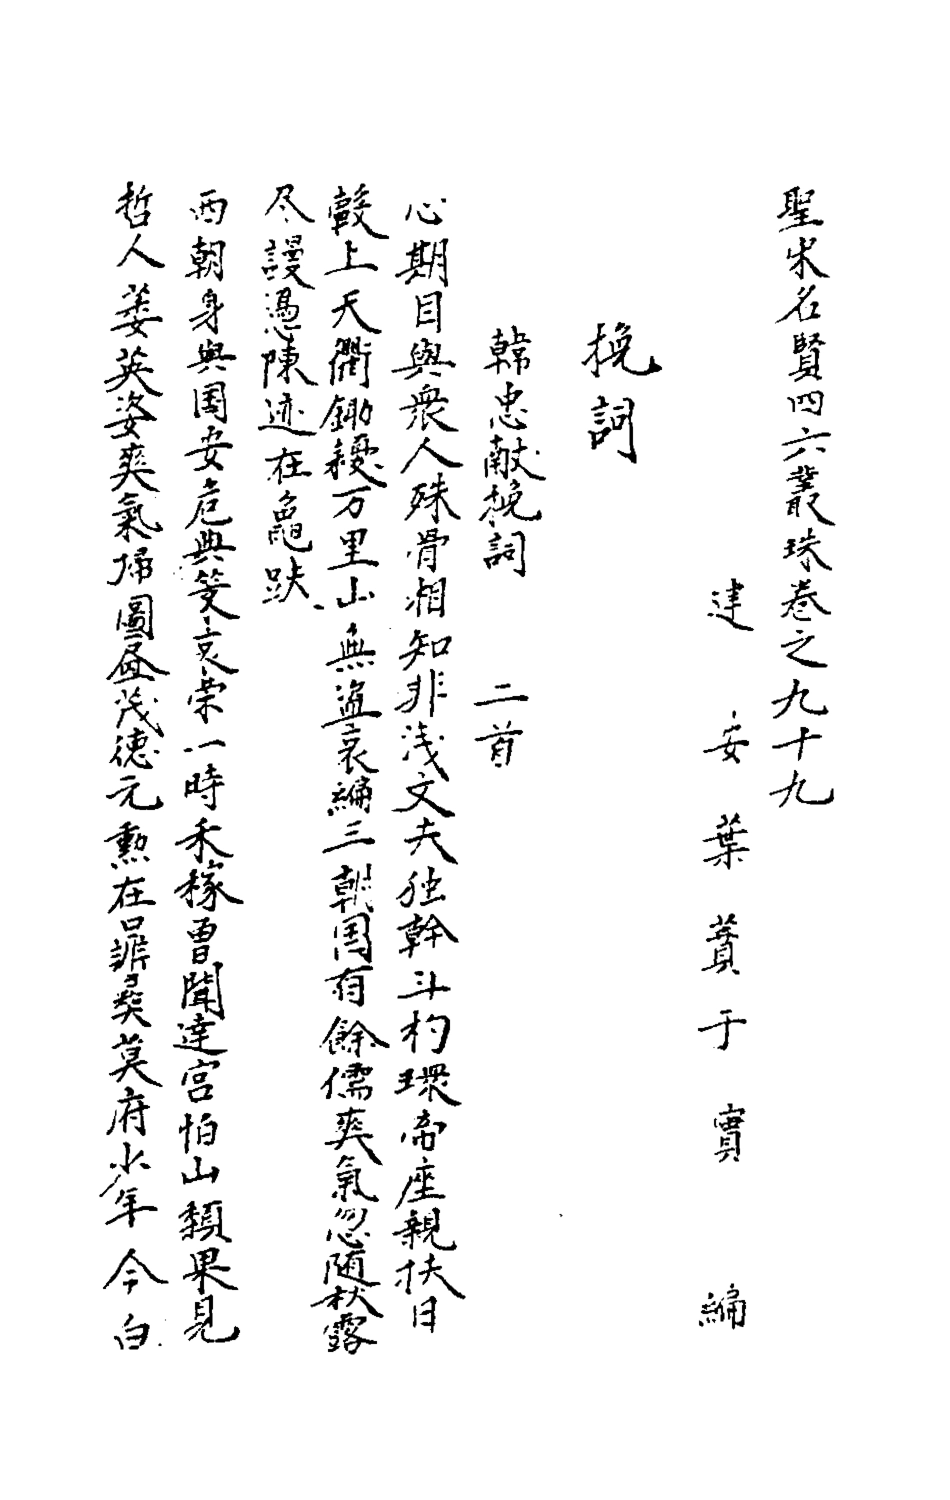 聖宋名賢四六叢珠卷之九十九
建安葉蕡子實編
挽詞
韓忠獻挽詞　二首
心期目與衆人殊骨相知非浅丈夫独幹斗杓環帝座親扶日
轂上天衢鋤耰万里山無盗衮綉三朝国有餘儒爽氣忽随秋露
尽謾憑陳迹在龜趺
两朝身與国安危典䇿哀荣一時禾稼曽聞達官怕山頽果見
哲人萎英姿爽氣帰圖画茂德元勲在鼎彛莫府少年今白